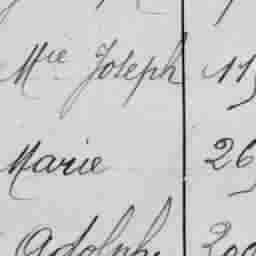 Mie Joseph 11
Marie 26
Adolph